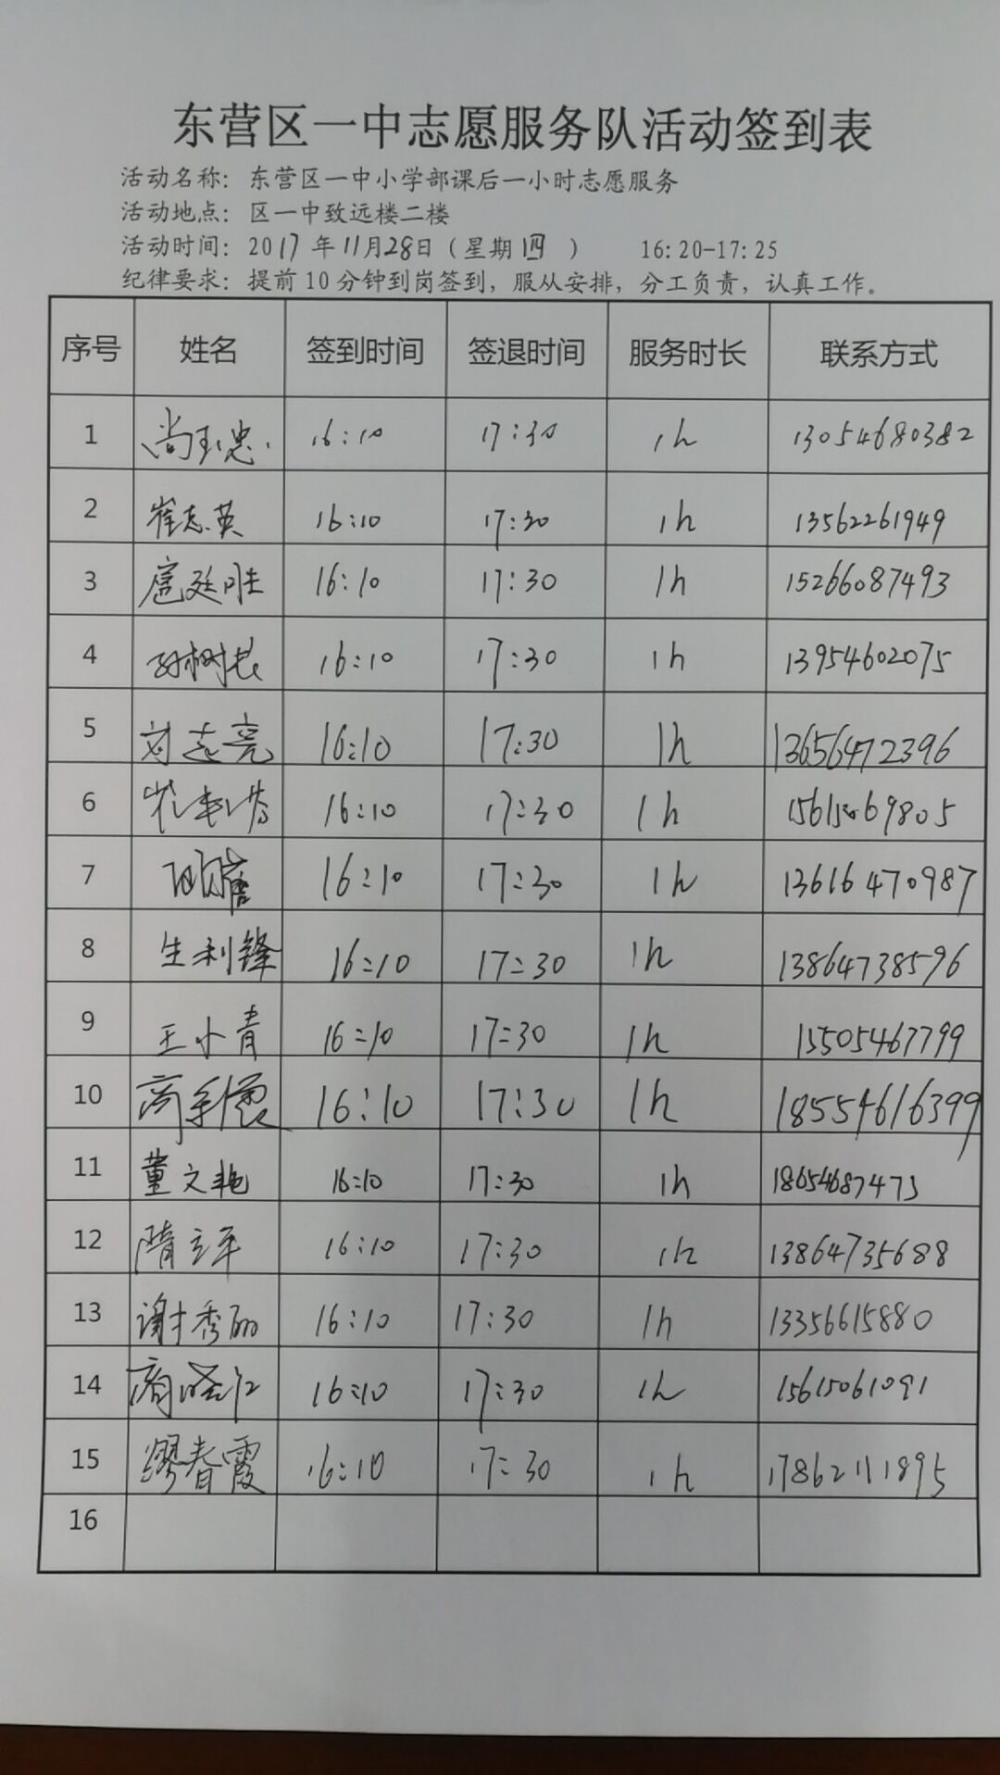 东营区一中志愿服务队活动签到表
活动名称：东营区一中小学部课后一小时志愿服务
活动地点：区一中致远楼二楼
活动时间：2017年11月28日（星期四） 16:20-17:25
纪律要求：提前10分钟到岗签到，服从安排，分工负责，认真工作。
序号 姓名 签到时间 签退时间 服务时长 联系方式
1 尚玉忠 16:10 17:30 1h 13054680382
2 崔志英 16:10 17:30 1h 13562261949
3 扈廷胜 16:10 17:30 1h 15266087493
4 孙树长 16:10 17:30 1h 13954602075
5 刘志亮 16:10 17:30 1h 13656472396
6 16:10 17:30 1h
7 16:10 17:30 1h 13616470987
8 生利锋 16:10 17:30 1h 13864738596
9 王小青 16:10 17:30 1h 15505467799
10 16:10 17:30 1h 18554616399
11 董文艳 16:10 17:30 1h 18654687473
12 隋立平 16:10 17:30 1h 13864735688
13 谢秀丽 16:10 17:30 1h 13356615880
14 16:10 17:30 1h 15615061091
15 缪春霞 16:10 17:30 1h 17862111895
16